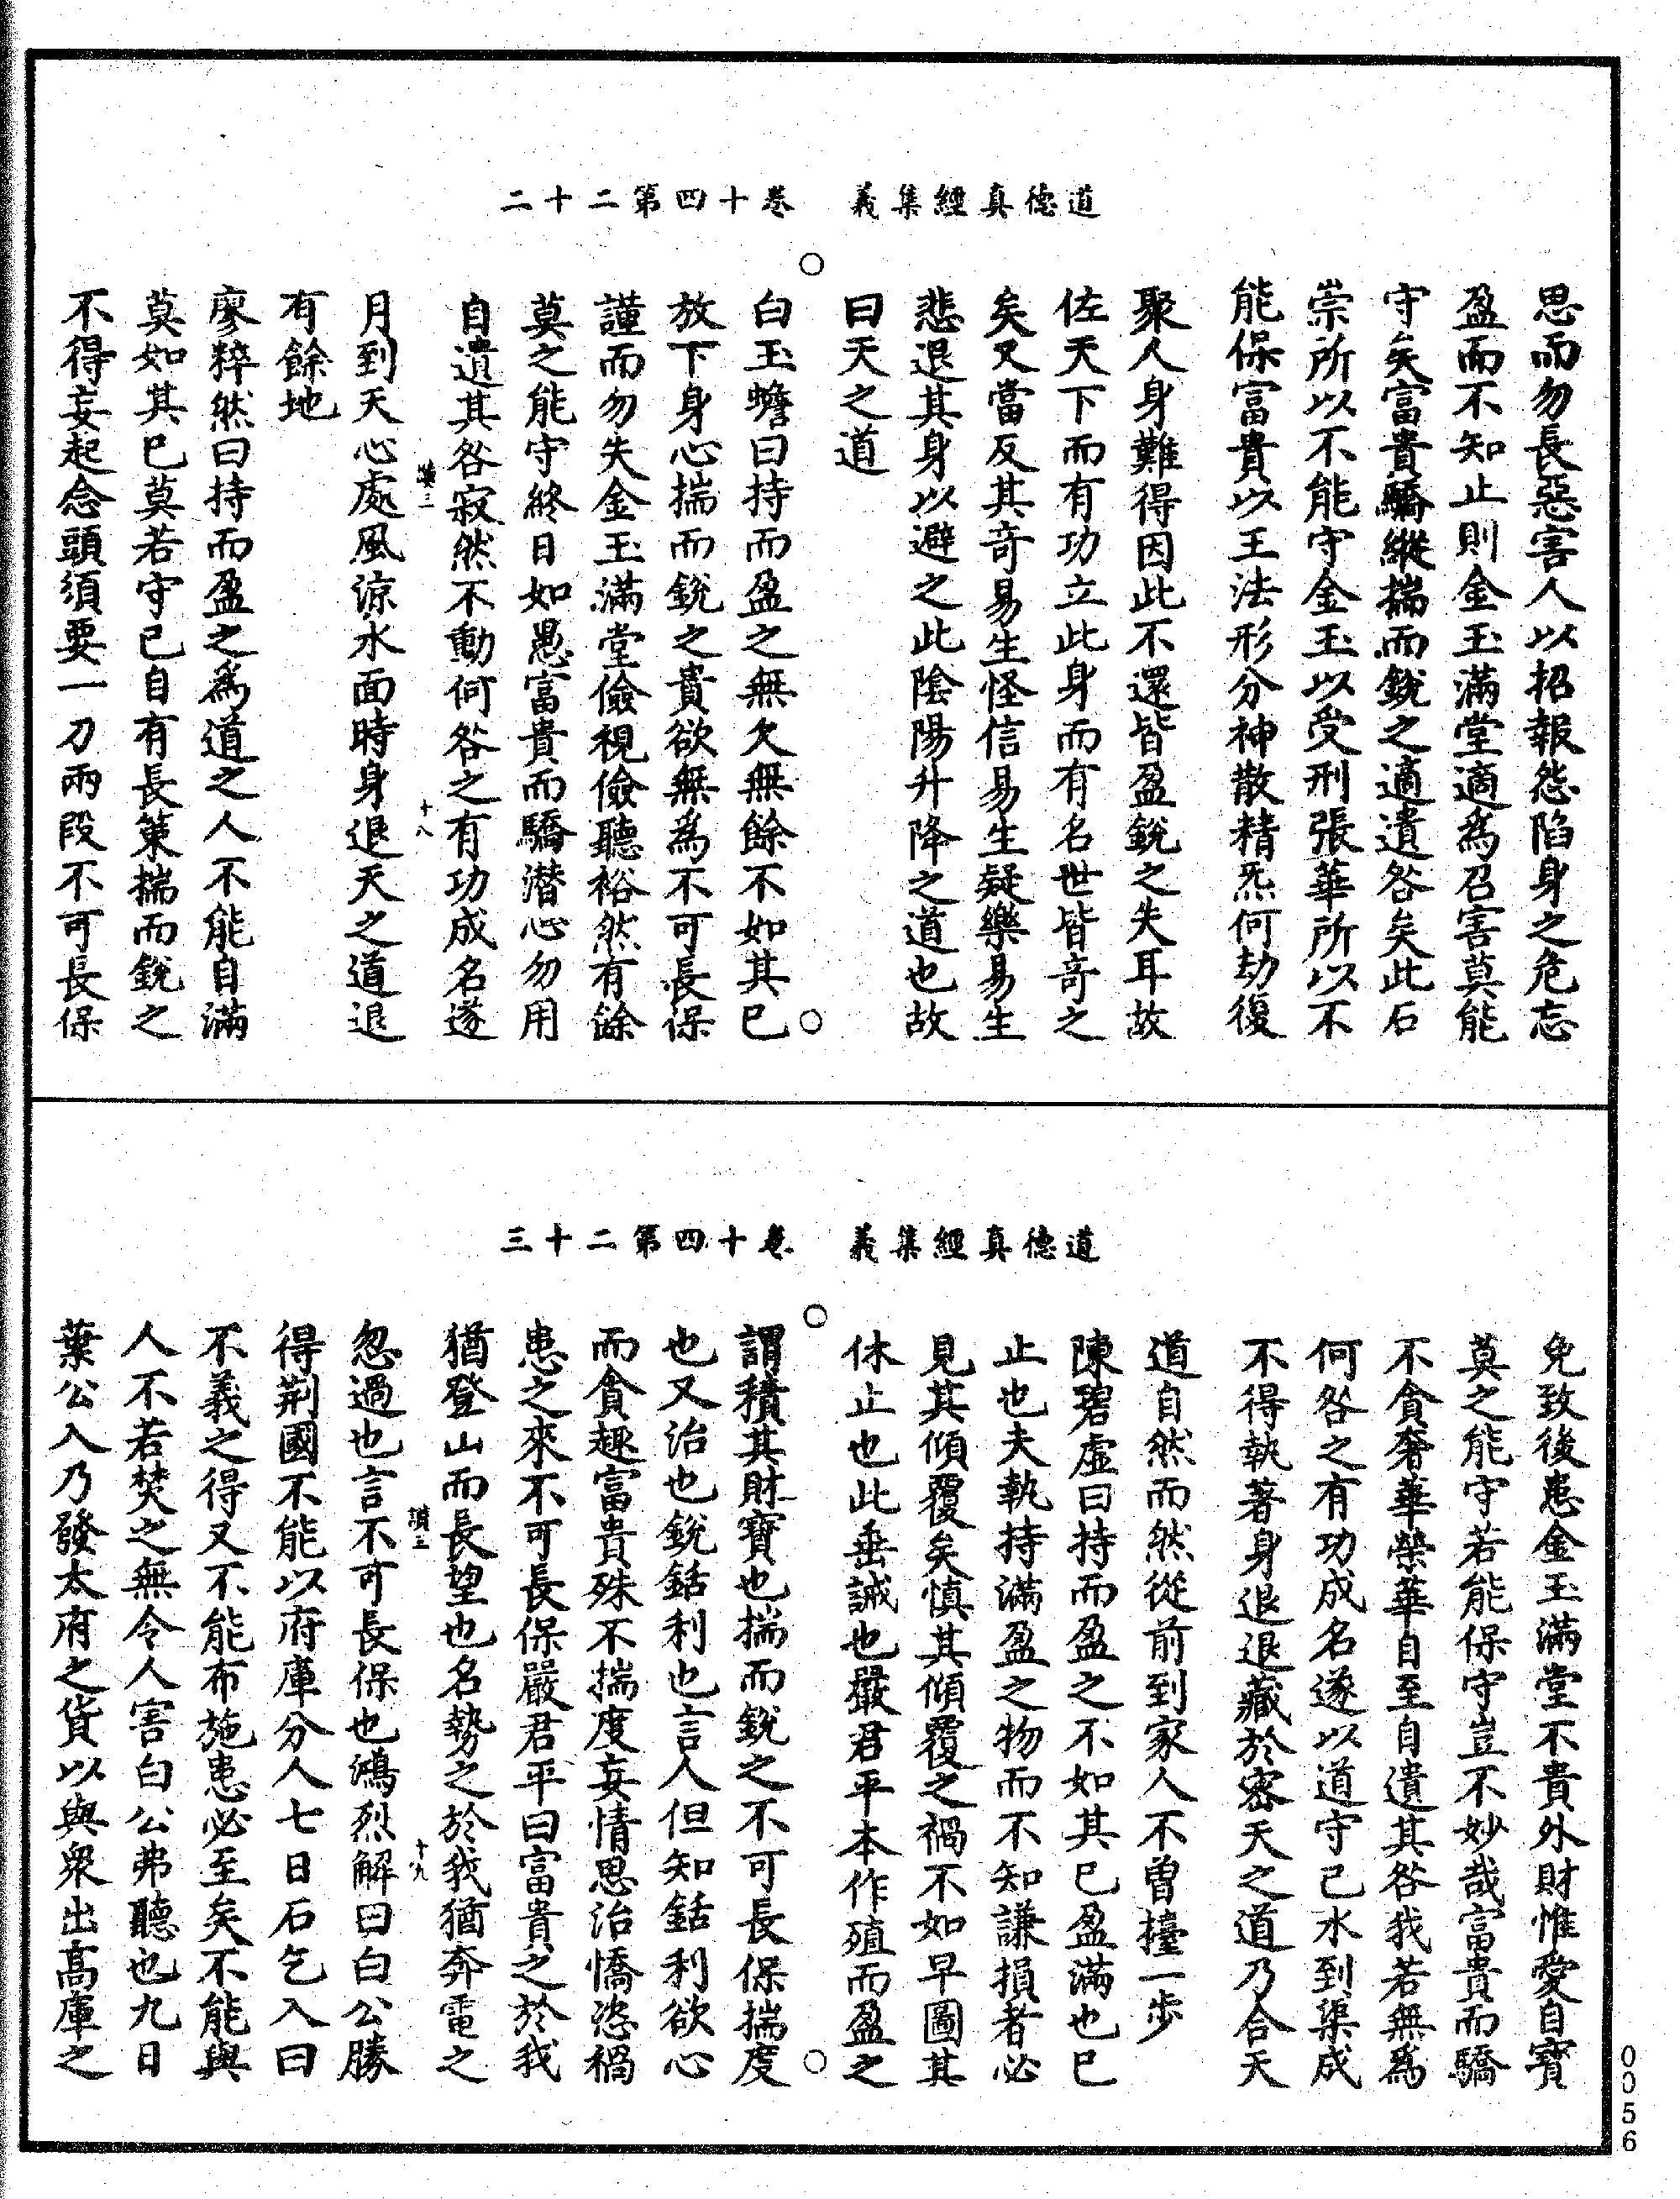 道德真經集義　卷十四第二十二
思而勿長惡害人以招報怨陷身之危忘
盈而不知止則金玉滿堂適為召害莫能
守矣富貴驕縱揣而銳之適遺咎矣此石
崇所以不能守金玉以受刑張華所以不
能保富貴以王法形分神散精炁何劫復
聚人身難得因此不還皆盈銳之失耳故
佐天下而有功立此身而有名世皆奇之
矣又當反其奇易生怪信易生疑樂易生
悲退其身以避之此陰陽升降之道也故
曰天之道
白玉蟾曰持而盈之無欠無餘不如其已
放下身心揣而銳之貴欲無為不可長保
謹而勿失金玉滿堂儉視儉聽裕然有餘
莫之能守終日如愚富貴而驕潛心勿用
自遺其咎寂然不動何咎之有功成名遂
月到天心處風涼水面時身退天之道退
有餘地
廖粹然曰持而盈之為道之人不能自滿
莫如其已莫若守已自有長策揣而銳之
不得妄起念頭須要一刀兩段不可長保
十八
道德真經集義　卷十四第二十三
免致後患金玉滿堂不貴外財惟愛自寶
莫之能守若能保守豈不妙哉富貴而驕
不貪奢華榮華自至自遺其咎我若無為
何咎之有功成名遂以道守己水到渠成
不得執著身退退藏於密天之道乃合天
道自然而然從前到家人不曾擡一步
陳碧虛曰持而盈之不如其已盈滿也已
止也夫執持滿盈之物而不知謙損者必
見其傾覆矣慎其傾覆之禍不如早圖其
休止也此垂誡也嚴君平本作殖而盈之
謂積其財寶也揣而銳之不可長保揣度
也又治也銳銛利也言人但知銛利欲心
而貪趣富貴殊不揣度妄情思治憍恣禍
患之來不可長保嚴君平曰富貴之於我
猶登山而長望也名勢之於我猶奔電之
忽過也言不可長保也鴻烈解曰白公勝
得荆國不能以府庫分人七日石乞入曰
不義之得又不能布施患必至矣不能與
人不若焚之無令人害白公弗聽也九日
葉公入乃發太府之貨以與衆出高庫之
十九
0056